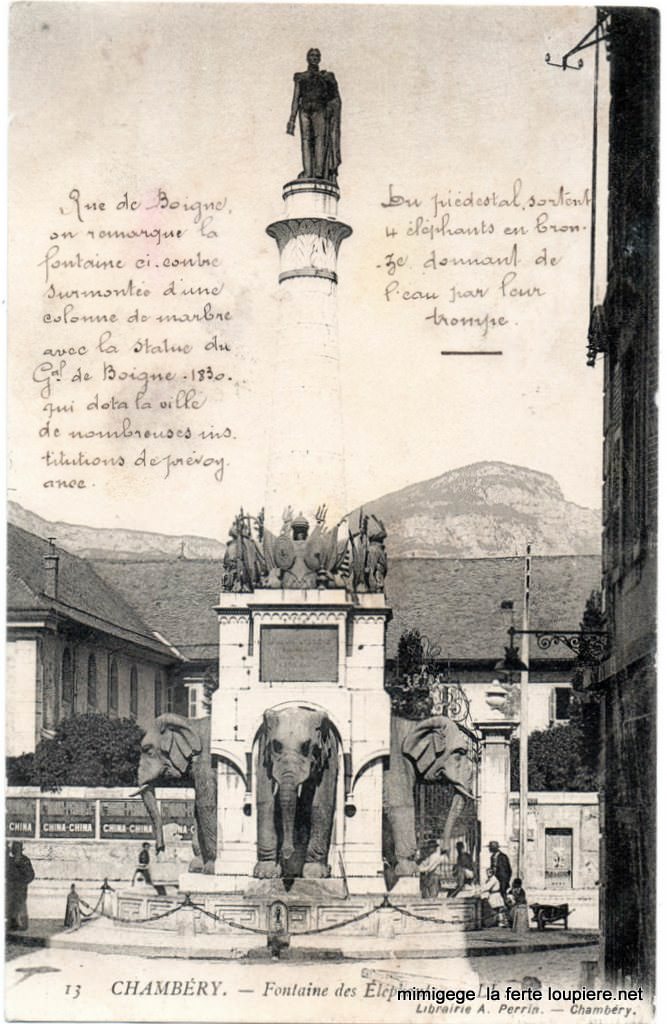 Rue de Boigne,
on remarque la
fontaine ci-contre
surmontée d'une
colonne de marbre
avec la statue du
Gal de Boigne - 1830.
qui dota la ville
de nombreuses ins.
titutions de prévoy.
ance.
Du piédestal, sortent
4 éléphants en bron-
ze donnant de
l'eau par leur
trompe.
CHINA CHINA-CHINA CHINA-CHINA
13 CHAMBÉRY. — Fontaine des
mimigege la ferte loupiere.net
Librairie A. Perrin. — Chambéry.